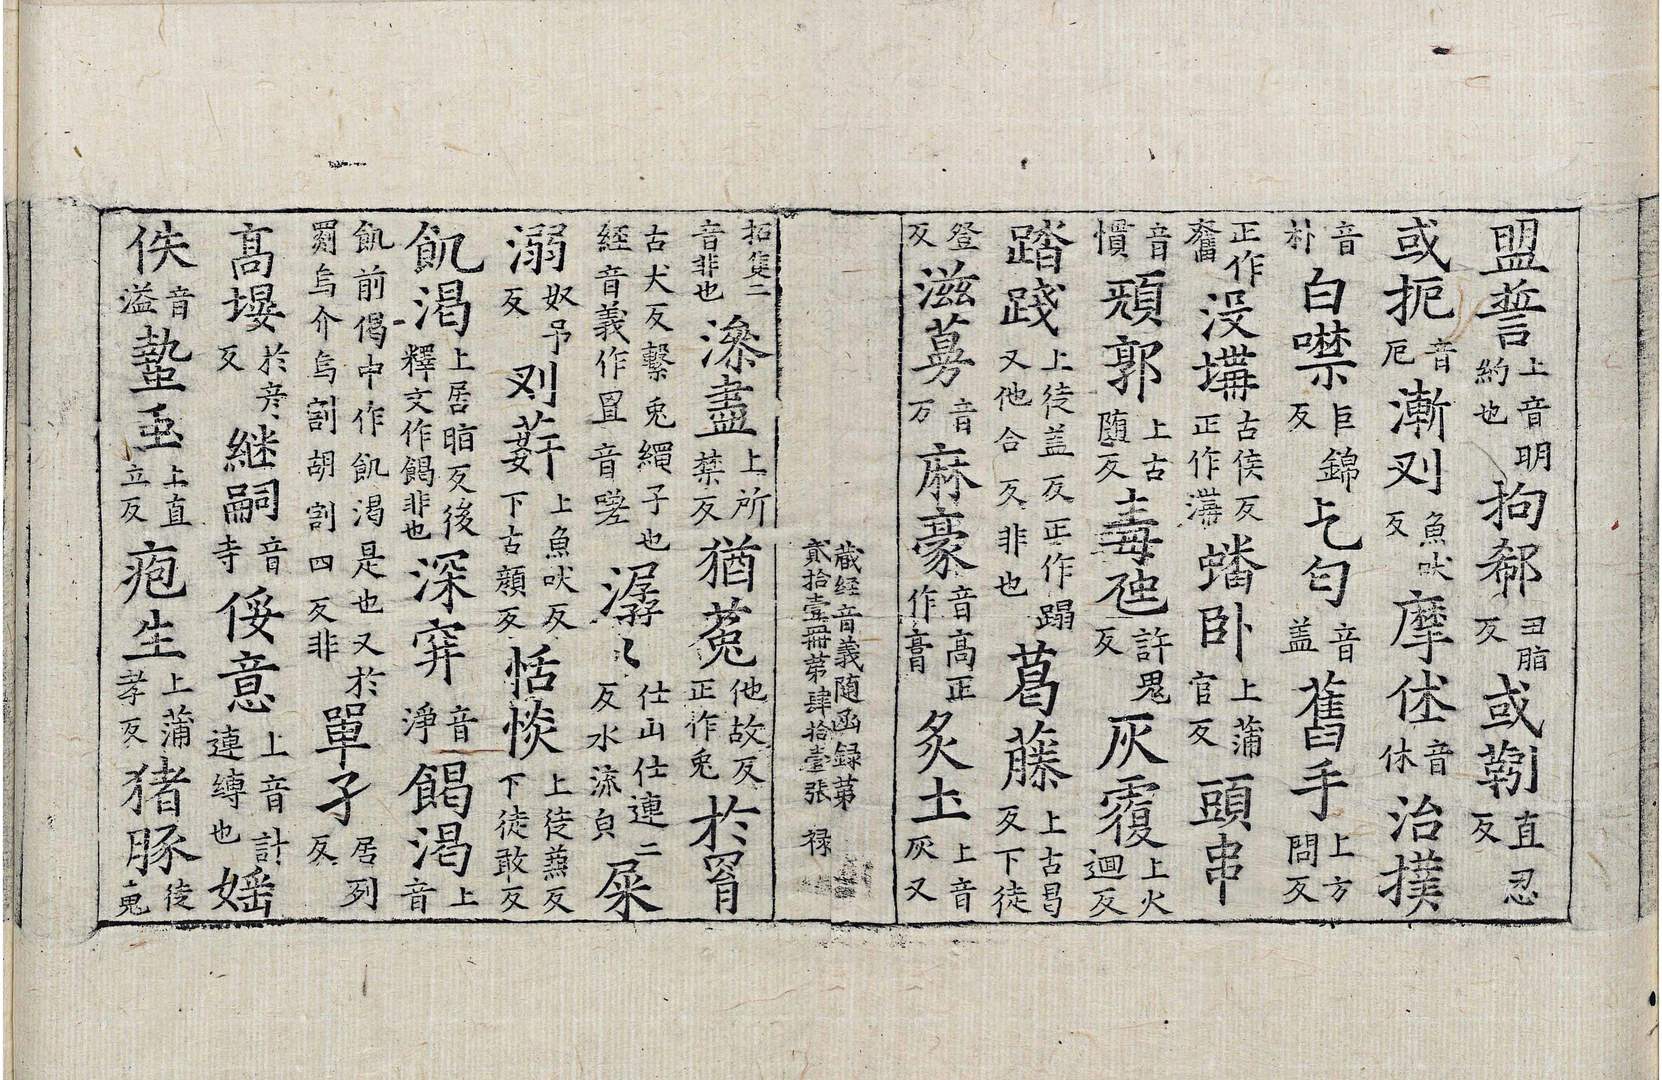 盟誓上音明約也拘郗丑脂反或剢直忍反
或扼音厄漸刈魚吠反摩㑊音休治撲
音朴白噤巨錦反乞匄音蓋舊手上方問反
正作奮没㙤古侯反正作溝蟠卧上蒲官反頭串
音慣頑郭上古隨反毒虺許鬼反灰覆上火迴反
踏踐上徒盖反正作蹋又他合反非也葛藤上古曷反下徒
登反滋蔓音万麻豪音高正作膏炙土上音灰又
藏経音義随函録第貳拾壹冊第肆拾壹張 禄
拓隻二音非也滲盡上所禁反猶菟他故反正作兔於罥
古犬反繫兎繩子也經音義作罝音嗟潺〻仕山仕連二反水流皃屎
溺奴弔反刈䓔上魚吠反下古顔反恬惔上徒蒹反下徒敢反
飢渴上居脂反後釋文作餲非也深穽音淨餲渴上音
飢前偈中作飢渴是也又於罽烏介烏割胡割四反非單孑居列反
高堰於彦反継嗣音寺倭意上音計連縳也婬
佚音溢蟄䖝上直立反疱生上蒲孝反猪豚徒䰟